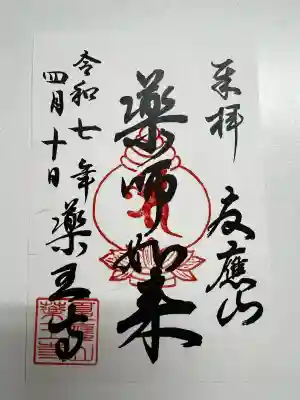 奉拝
友應山
薬師如来
薬王寺
令和七年
四月十日